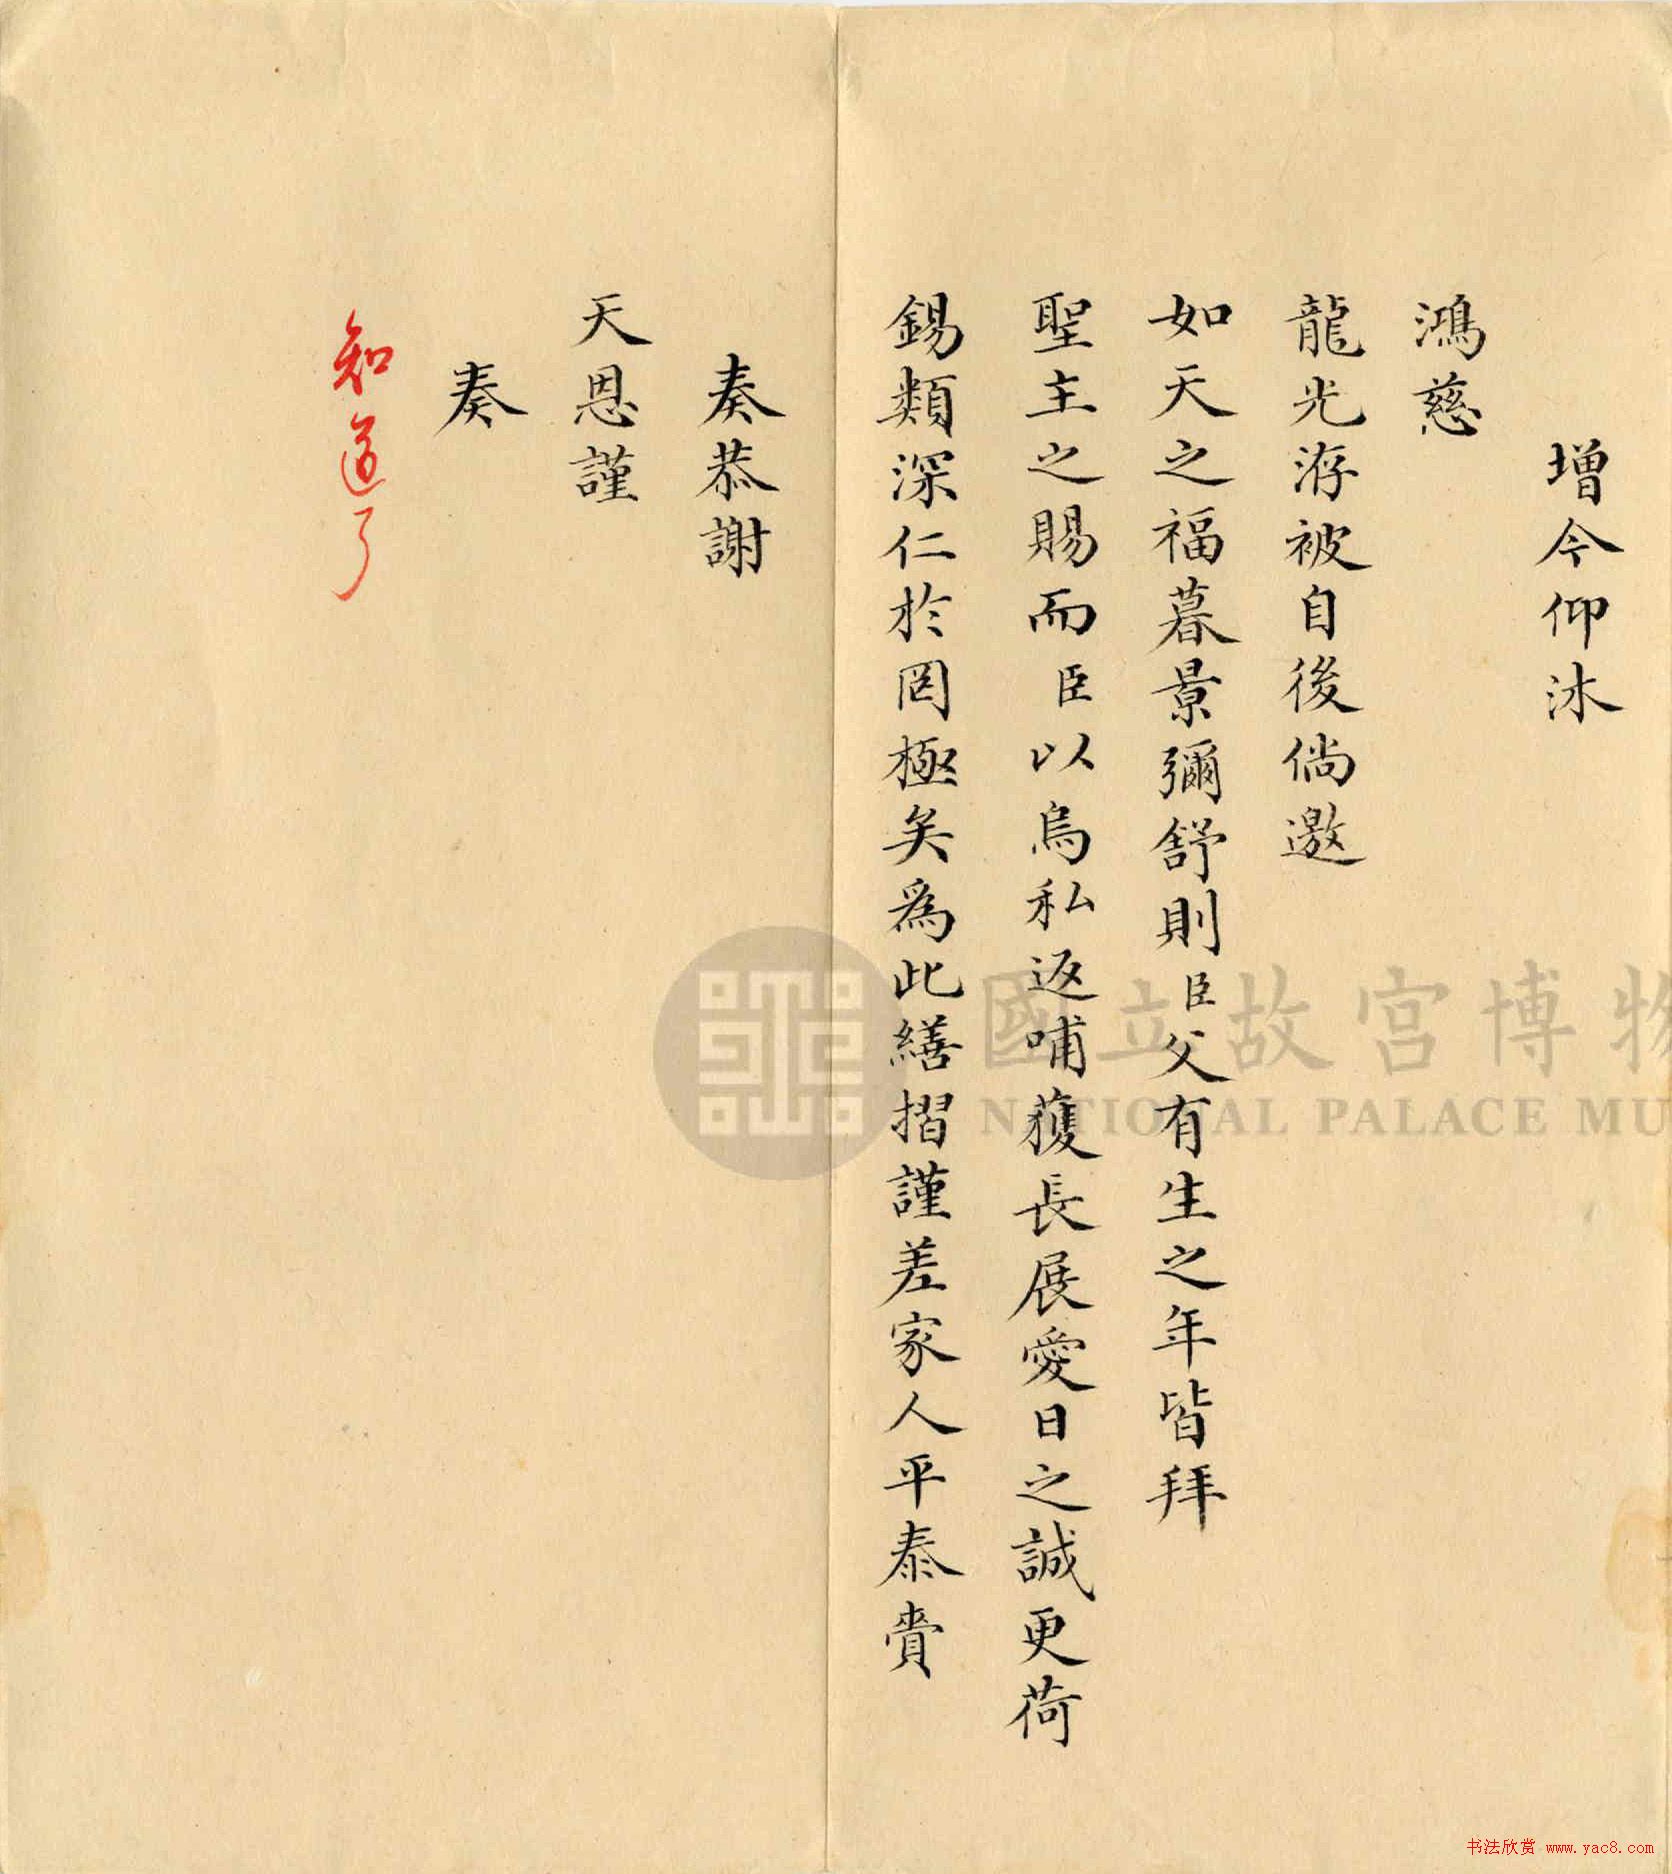 增今仰沐
鴻慈
龍光洊被自後倘邀
如天之福暮景彌舒則臣父有生之年皆拜
聖主之賜而臣以烏私返哺獲長展愛日之誠更荷
錫類深仁於罔極矣為此繕摺謹差家人平泰賫
奏恭謝
天恩謹
奏
知道了
國立故宮博物
NATIONAL PALACE MU
书法欣赏 www.yac8.com